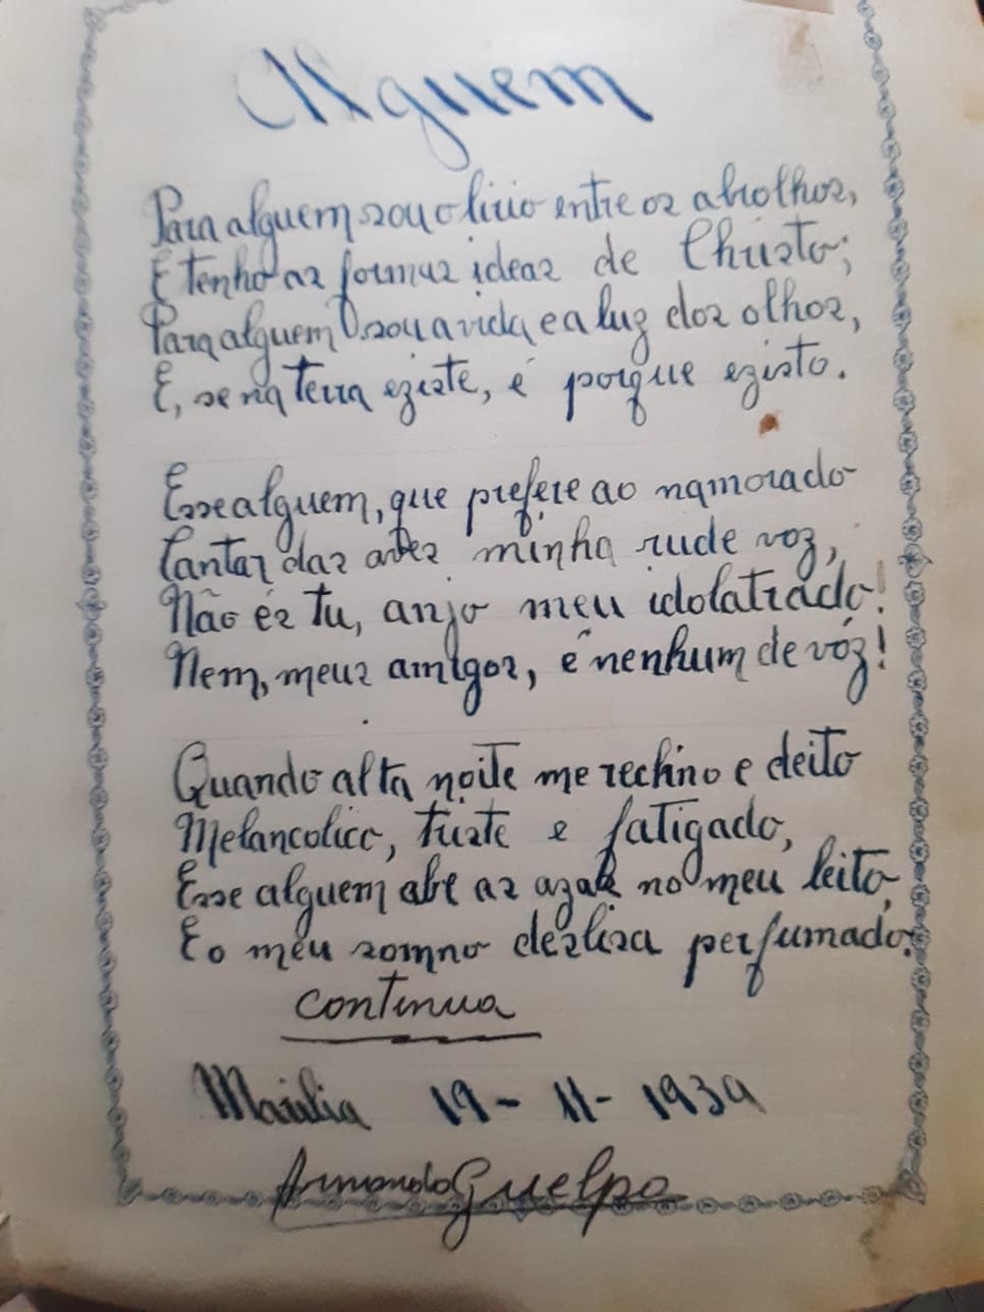 Alguem
Para alguem sou o lirio entre os abrolhos,
E tenho as formas ideas de Christo;
Para alguem sou a vida e a luz dos olhos,
E, se na terra eziste, é porque ezisto.
Esse alguem, que prefere ao namorado
Cantar das aves minha rude voz,
Não és tu, anjo meu idolatrado!
Nem, meus amigos, é nenhum de vóz!
Quando alta noite me reclino e deito
Melancolico, triste e fatigado,
Esse alguem abre as azas no meu leito,
E o meu somno deslisa perfumado.
Continua
Marilia 19-11-1939
Armando Guelpa